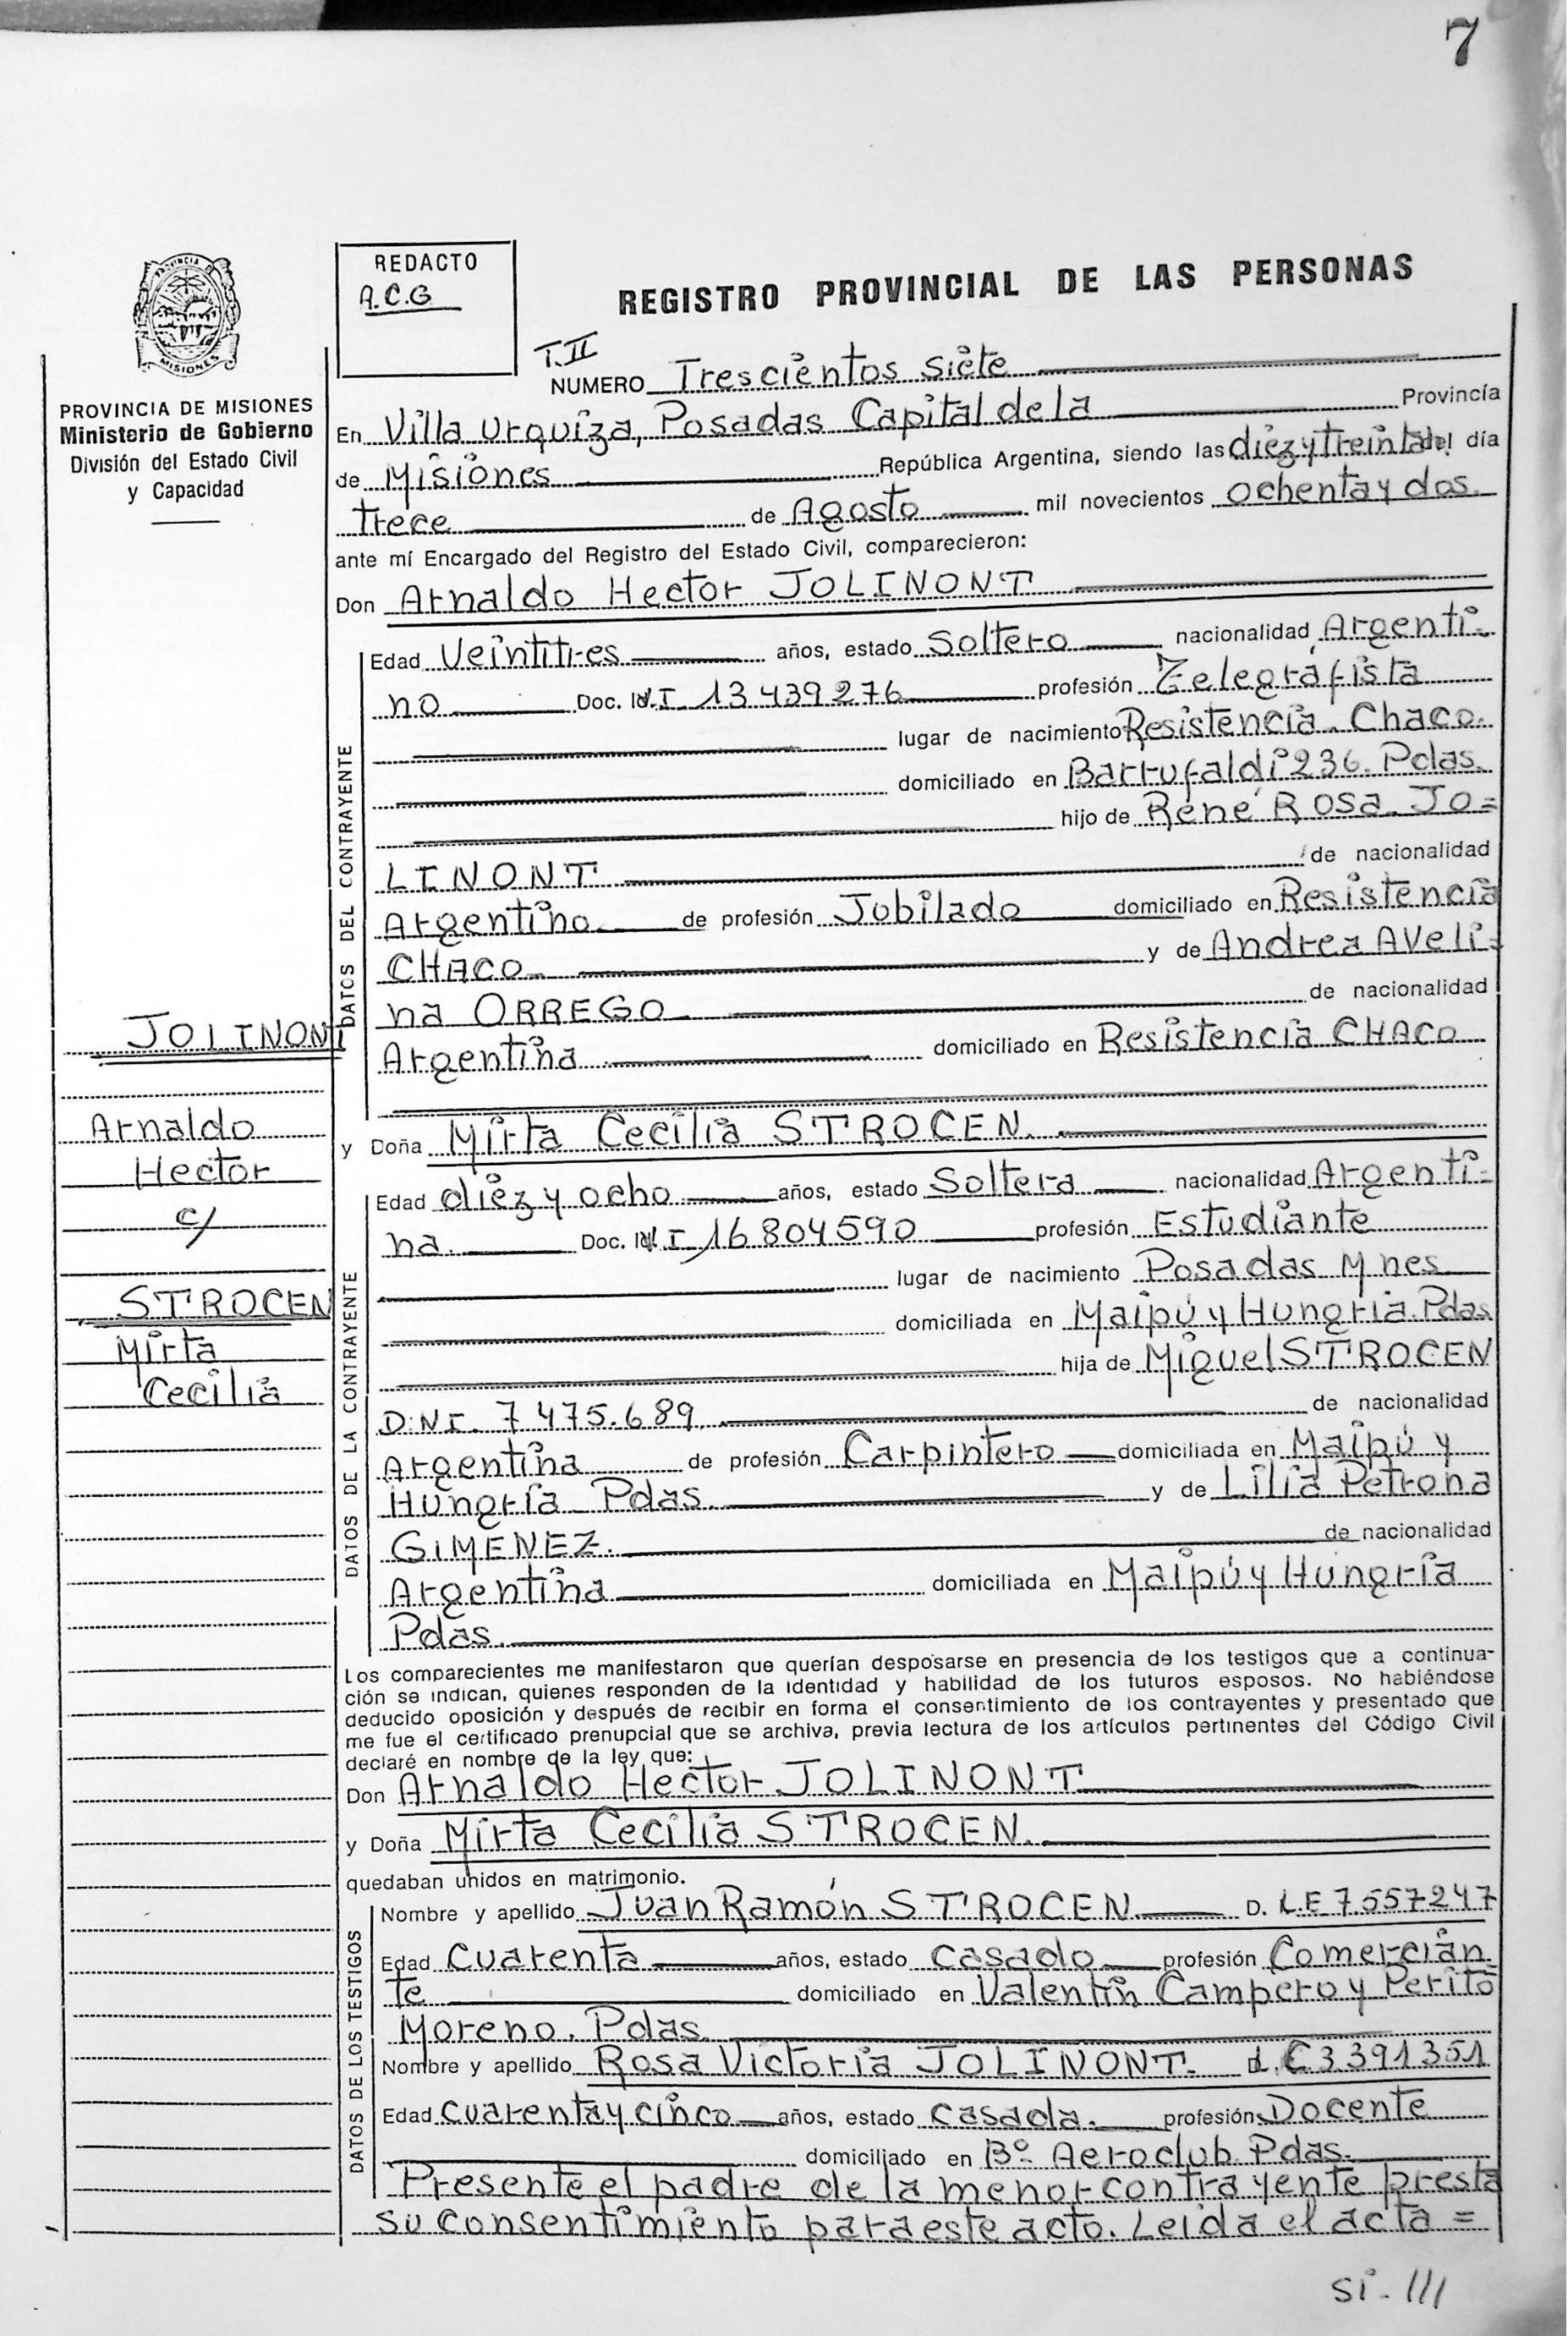 7
PROVINCIA DE
MISIONES
PROVINCIA DE MISIONES
Ministerio de Gobierno
División del Estado Civil
y Capacidad
REDACTO
A.C.G
REGISTRO PROVINCIAL DE LAS PERSONAS
T.II
NUMERO Trescientos siete
En Villa Urquiza, Posadas Capital de la Provincia
de Misiones República Argentina, siendo las diez y treinta del día
trece de Agosto mil novecientos ochenta y dos
ante mí Encargado del Registro del Estado Civil, comparecieron:
Don Arnaldo Hector JOLINONT
DATOS DEL CONTRAYENTE
Edad Veintitres años, estado Soltero nacionalidad Argenti-
no Doc. Id. N.I. 13439276 profesión Telegráfista
lugar de nacimiento Resistencia. Chaco.
domiciliado en Barrufaldi 236. Pdas.
hijo de René Rosa JO=
LINONT de nacionalidad
Argentino de profesión Jubilado domiciliado en Resistencia
CHACO y de Andrea Aveli=
na ORREGO de nacionalidad
Argentina domiciliado en Resistencia CHACO
y Doña Mirta Cecilia STROCEN.
DATOS DE LA CONTRAYENTE
Edad diez y ocho años, estado Soltera nacionalidad Argenti-
na. Doc. Id. N.I. 16804590 profesión Estudiante
lugar de nacimiento Posadas Mnes
domiciliada en Maipú y Hungria. Pdas
hija de Miguel STROCEN
D.N.I. 7475.689 de nacionalidad
Argentina de profesión Carpintero domiciliada en Maipú y
Hungría Pdas. y de Lilia Petrona
GIMENEZ. de nacionalidad
Argentina domiciliada en Maipú y Hungría
Pdas.
Los comparecientes me manifestaron que querían desposarse en presencia de los testigos que a continua-
ción se indican, quienes responden de la identidad y habilidad de los futuros esposos. No habiéndose
deducido oposición y después de recibir en forma el consentimiento de los contrayentes y presentado que
me fue el certificado prenupcial que se archiva, previa lectura de los artículos pertinentes del Código Civil
declaré en nombre de la ley que:
Don Arnaldo Hector JOLINONT
y Doña Mirta Cecilia STROCEN.
quedaban unidos en matrimonio.
DATOS DE LOS TESTIGOS
Nombre y apellido Juan Ramón STROCEN D. L.E 7557247
Edad Cuarenta años, estado Casado profesión Comercian
te domiciliado en Valentín Campero y Perito
Moreno. Pdas.
Nombre y apellido Rosa Victoria JOLINONT. d. C 3391351
Edad Cuarenta y cinco años, estado Casada. profesión Docente
domiciliado en Bº Aeroclub Pdas.
Presente el padre de la menor contrayente presta
su consentimiento para este acto. Leida el acta =
JOLINONT
Arnaldo
Hector
c/
STROCEN
Mirta
Cecilia
si- ///